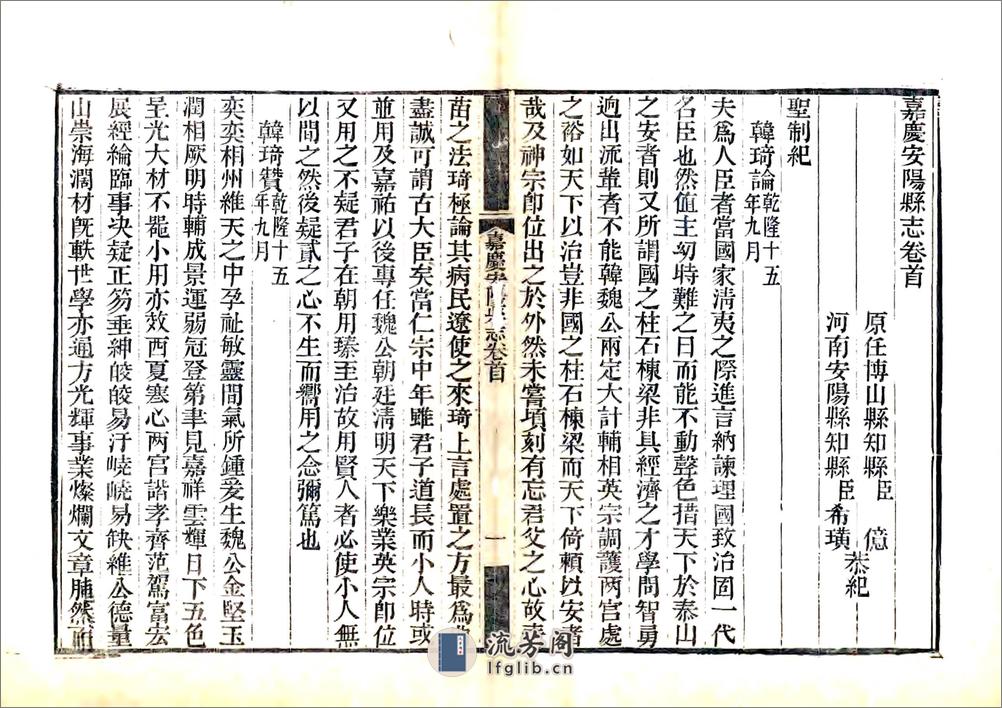 嘉慶安陽縣志卷首
原任博山縣知縣臣 億
河南安陽縣知縣臣希璜
恭紀
聖制紀
韓琦論乾隆十五年九月
夫爲人臣者當國家淸夷之際進言納諫理國致治固一代
名臣也然値主幼時難之日而能不動聲色措天下於泰山
之安者則又所謂國之柱石棟梁非具經濟之才學問智勇
逈出流軰者不能韓魏公兩定大計輔相英宗調護两宮處
之裕如天下以治豈非國之柱石棟梁而天下倚賴以安者
哉及神宗卽位出之於外然未嘗頃刻有忘君父之心故
嘉慶安陽縣志卷首
一
苗之法琦極論其病民遼使之來琦上言處置之方最爲
盡誠可謂古大臣矣當仁宗中年雖君子道長而小人時或
並用及嘉祐以後專任魏公朝廷淸明天下樂業英宗卽位
又用之不疑君子在朝用臻至治故用賢人者必使小人無
以間之然後疑貳之心不生而嚮用之念彌篤也
韓琦贊乾隆十五年九月
奕奕相州維天之中孕祉敏靈間氣所鍾爰生魏公金堅玉
潤相厥明時輔成景運弱冠登第聿見嘉祥雲輝日下五色
呈光大材不罷小用亦效西夏寒心两宮諧孝齊范駕富宏
展經綸臨事决疑正笏垂紳皎皎易汙嶢嶢易缺維公德量
山崇海濶材旣軼世學亦通方光輝事業燦爛文章腼然而
流芳阁
lfglib.cn